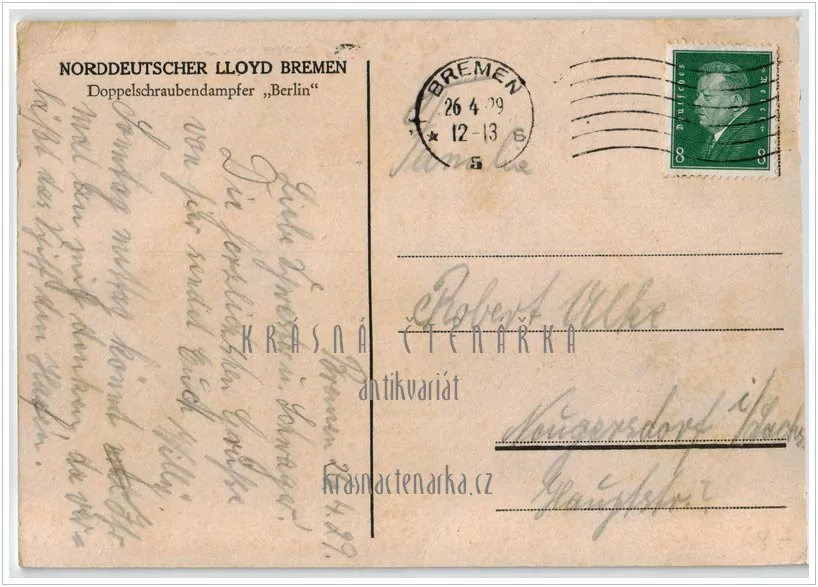 NORDDEUTSCHER LLOYD BREMEN
Doppelschraubendampfer „Berlin“
BREMEN
26 4 29
12-13
* S
5
Deutsches Reich
8 8
Familie
Robert Ulke
Neugersdorf i/Sachs.
Hauptstr.
Bremen 26.4.29.
Liebe Schwester u. Schwager!
Die herzlichsten Grüße
von hier sendet Euch Willy
Sonntag mittag könnt Ihr
mal an mich denken, da ver-
läßt das Schiff den Hafen.
KRÁSNÁ ČTENÁŘKA
antikvariát
krasnactenarka.cz